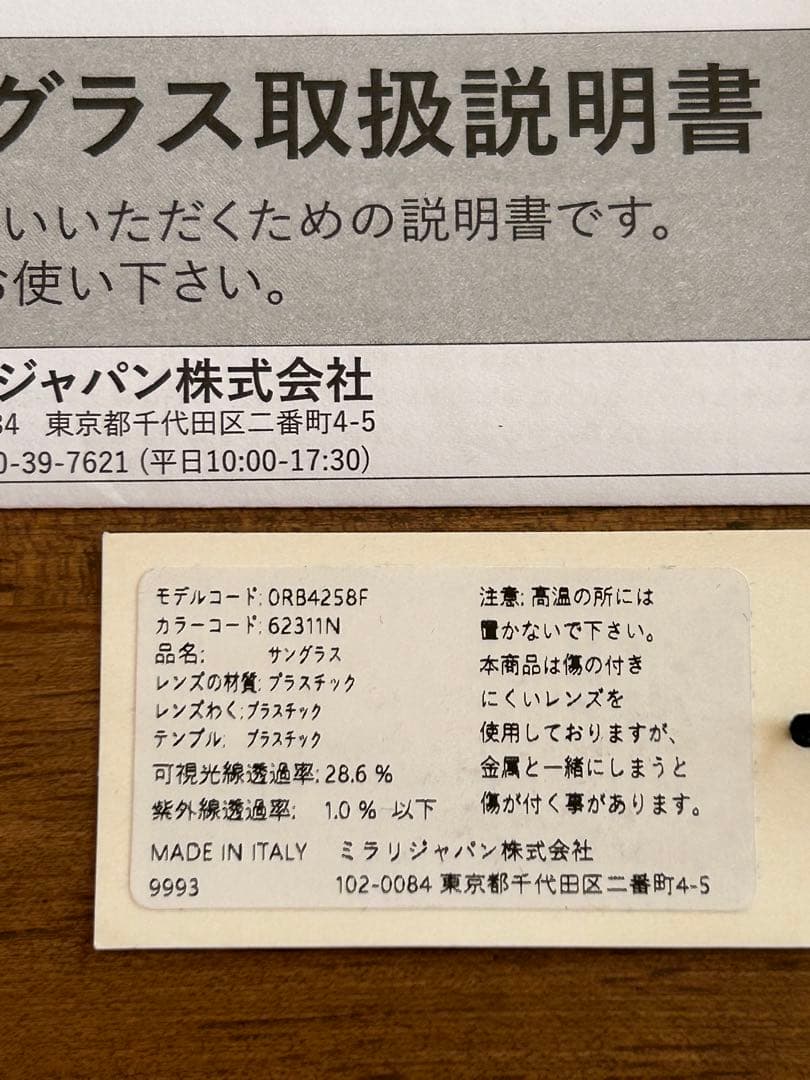 グラス取扱説明書
いいただくための説明書です。
お使い下さい。
ジャパン株式会社
84 東京都千代田区二番町4-5
0-39-7621 (平日10:00-17:30)
モデルコード: 0RB4258F
カラーコード: 62311N
品名: サングラス
レンズの材質: プラスチック
レンズわく: プラスチック
テンプル: プラスチック
可視光線透過率: 28.6 %
紫外線透過率: 1.0 % 以下
MADE IN ITALY
9993
注意: 高温の所には
置かないで下さい。
本商品は傷の付き
にくいレンズを
使用しておりますが、
金属と一緒にしまうと
傷が付く事があります。
ミラリジャパン株式会社
102-0084 東京都千代田区二番町4-5